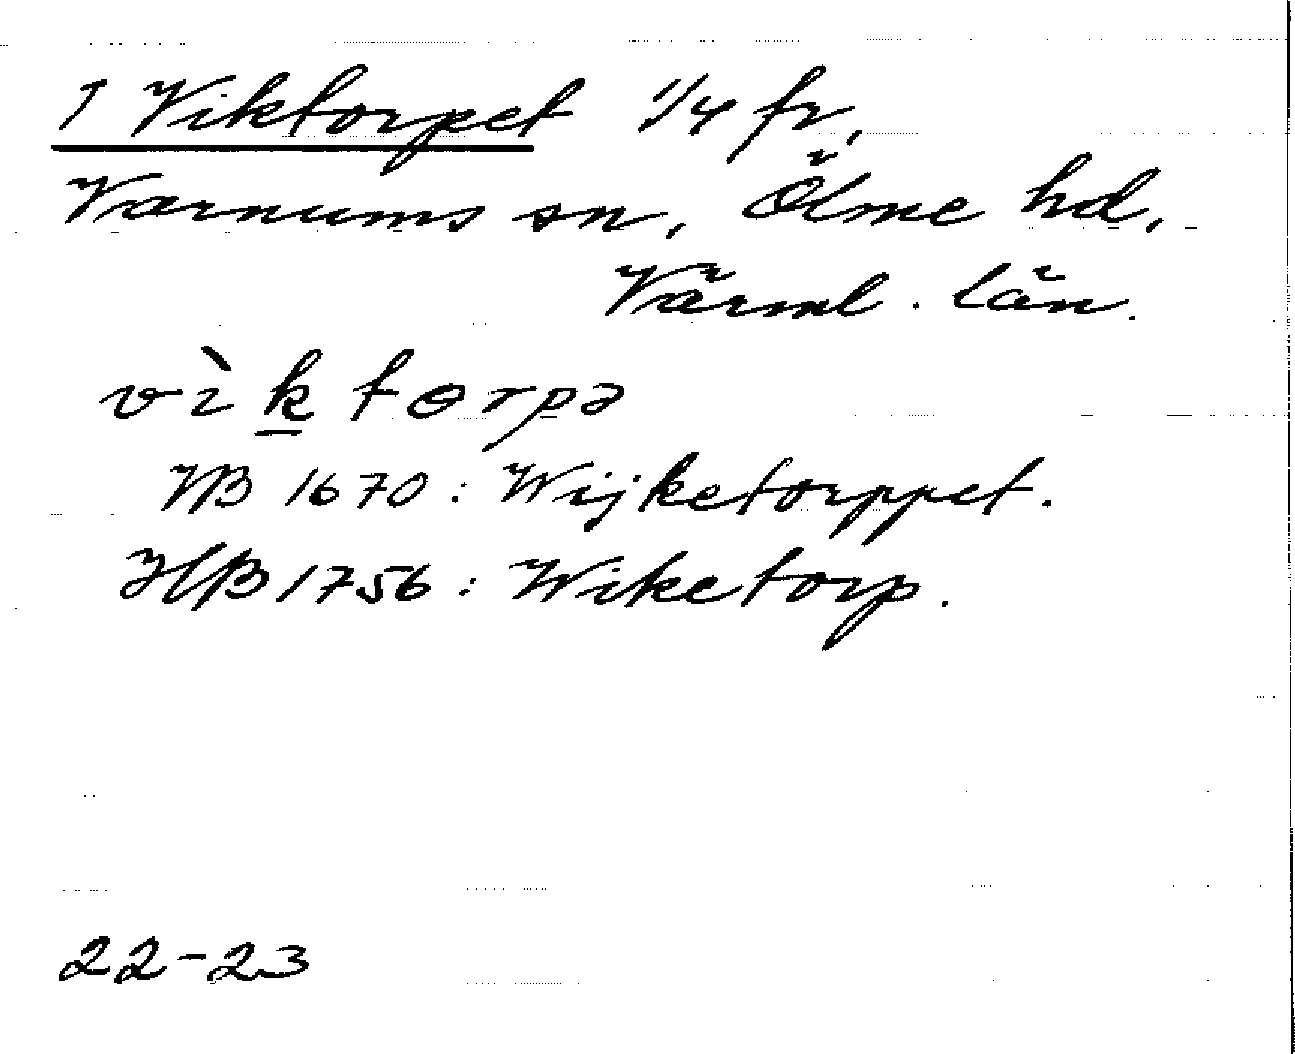 1 Viktorpet 1/4 fr,
Varnums sn, Ölme hd,
Värml. län.
vìk torpə
JB 1670: Wijketorppet.
HB 1756: Wiketorp.
22-23